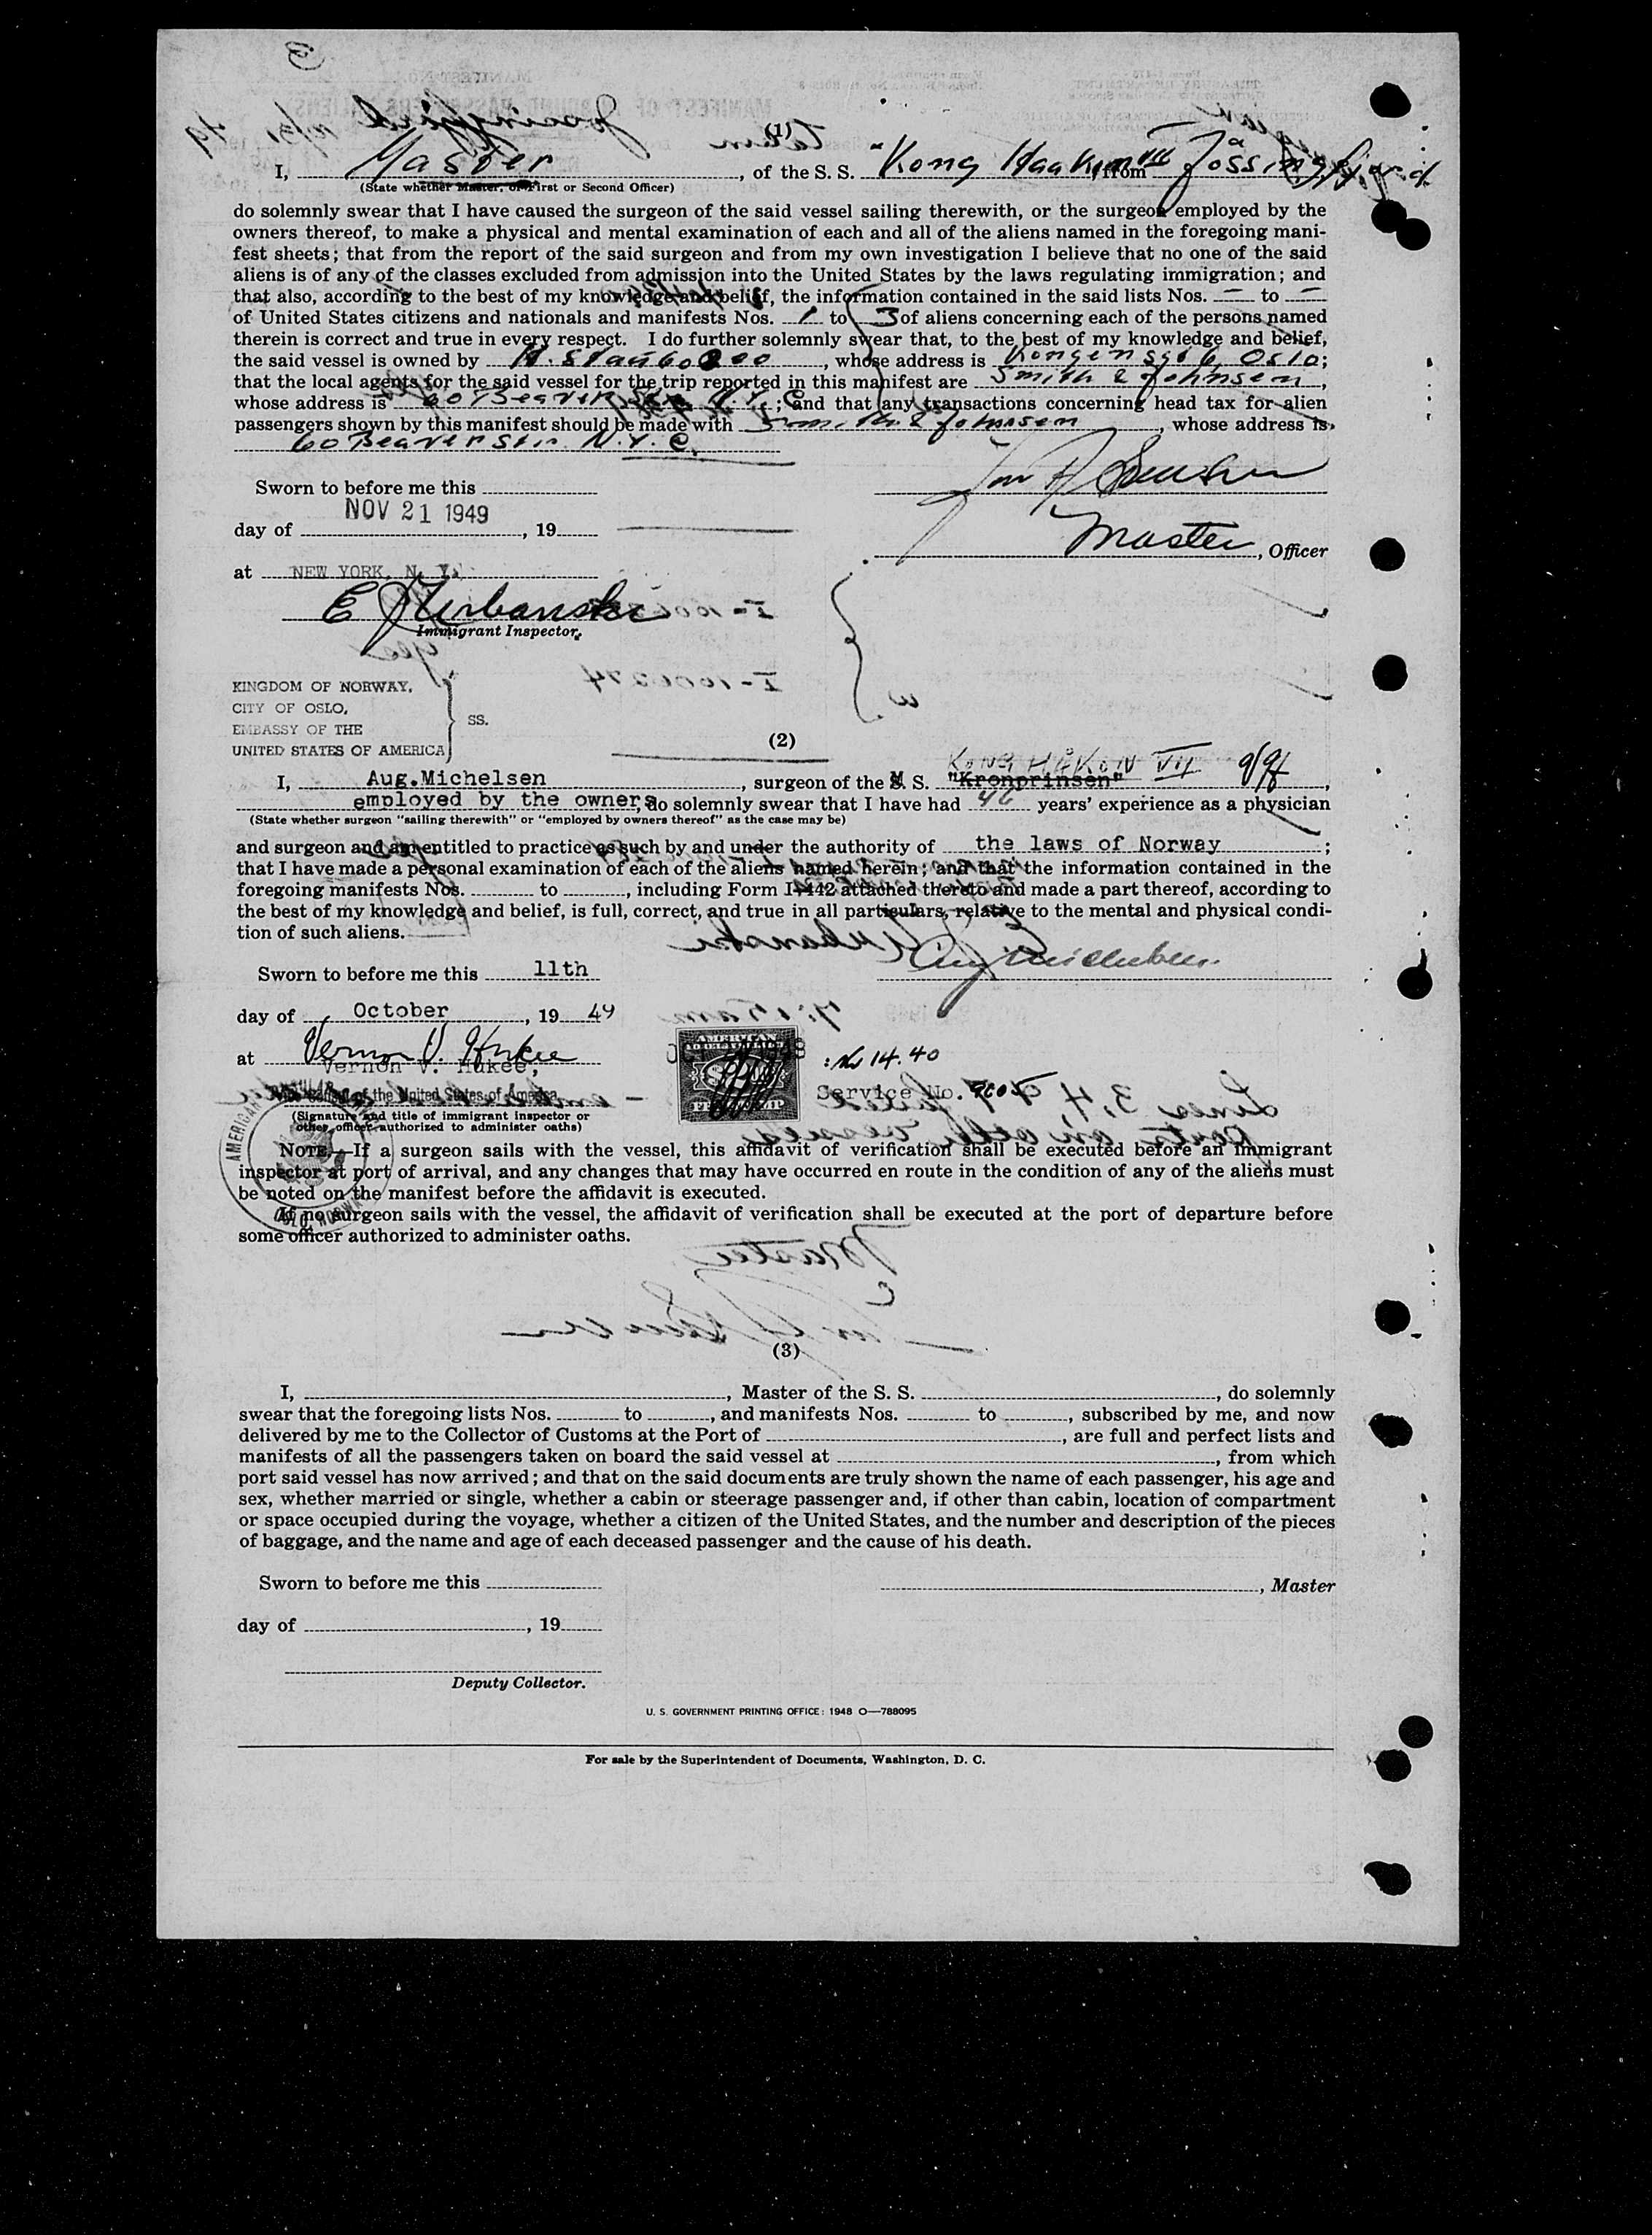 (1)
I, Master, of the S. S. "Kong Haakon VII, from Jössingfjord
(State whether Master, or First or Second Officer)
do solemnly swear that I have caused the surgeon of the said vessel sailing therewith, or the surgeon employed by the
owners thereof, to make a physical and mental examination of each and all of the aliens named in the foregoing mani-
fest sheets; that from the report of the said surgeon and from my own investigation I believe that no one of the said
aliens is of any of the classes excluded from admission into the United States by the laws regulating immigration; and
that also, according to the best of my knowledge and belief, the information contained in the said lists Nos. — to —
of United States citizens and nationals and manifests Nos. 1 to 3 of aliens concerning each of the persons named
therein is correct and true in every respect. I do further solemnly swear that, to the best of my knowledge and belief,
the said vessel is owned by H. Staubo & Co, whose address is Kongensgt 6 Oslo;
that the local agents for the said vessel for the trip reported in this manifest are Smith & Johnsen,
whose address is 60 Beaver Str. N.Y.C; and that any transactions concerning head tax for alien
passengers shown by this manifest should be made with Smith & Johnsen, whose address is
60 Beaver Str. N.Y.C.
Sworn to before me this
NOV 21 1949
day of , 19
Master, Officer
at NEW YORK, N. Y.
E J Urbanski
Immigrant Inspector.
KINGDOM OF NORWAY,
CITY OF OSLO,
EMBASSY OF THE
UNITED STATES OF AMERICA
SS.
(2)
KONG HÅKON VII
I, Aug. Michelsen, surgeon of the M S. "Kronprinsen",
employed by the owners, do solemnly swear that I have had 46 years' experience as a physician
(State whether surgeon "sailing therewith" or "employed by owners thereof" as the case may be)
and surgeon and am entitled to practice as such by and under the authority of the laws of Norway;
that I have made a personal examination of each of the aliens named herein; and that the information contained in the
foregoing manifests Nos. to , including Form I-442 attached thereto and made a part thereof, according to
the best of my knowledge and belief, is full, correct, and true in all particulars, relative to the mental and physical condi-
tion of such aliens.
Aug Michelsen
Sworn to before me this 11th
day of October, 19 49
at Vernon V. Hukee
Vernon V. Hukee,
Vice Consul of the United States of America
(Signature and title of immigrant inspector or
other officer authorized to administer oaths)
AMERICAN
FEE STAMP
14.40
Service No.
OSLO, NORWAY
NOTE.—If a surgeon sails with the vessel, this affidavit of verification shall be executed before an immigrant
inspector at port of arrival, and any changes that may have occurred en route in the condition of any of the aliens must
be noted on the manifest before the affidavit is executed.
If no surgeon sails with the vessel, the affidavit of verification shall be executed at the port of departure before
some officer authorized to administer oaths.
(3)
I, , Master of the S. S. , do solemnly
swear that the foregoing lists Nos. to , and manifests Nos. to , subscribed by me, and now
delivered by me to the Collector of Customs at the Port of , are full and perfect lists and
manifests of all the passengers taken on board the said vessel at , from which
port said vessel has now arrived; and that on the said documents are truly shown the name of each passenger, his age and
sex, whether married or single, whether a cabin or steerage passenger and, if other than cabin, location of compartment
or space occupied during the voyage, whether a citizen of the United States, and the number and description of the pieces
of baggage, and the name and age of each deceased passenger and the cause of his death.
Sworn to before me this
, Master
day of , 19
Deputy Collector.
U. S. GOVERNMENT PRINTING OFFICE: 1948 O—788095
For sale by the Superintendent of Documents, Washington, D. C.